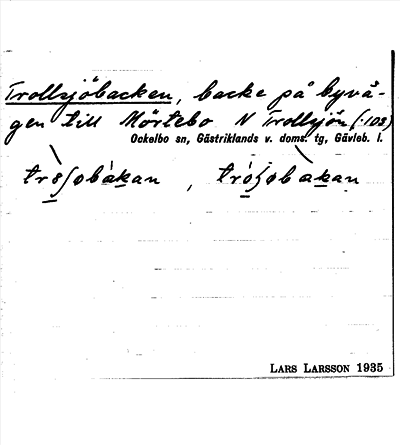 Trollsjöbacken, backe på byvä-
gen till Mörtebo N Trollsjön (·102)
Ockelbo sn, Gästriklands v. doms. tg, Gävleb. l.
LARS LARSSON 1935